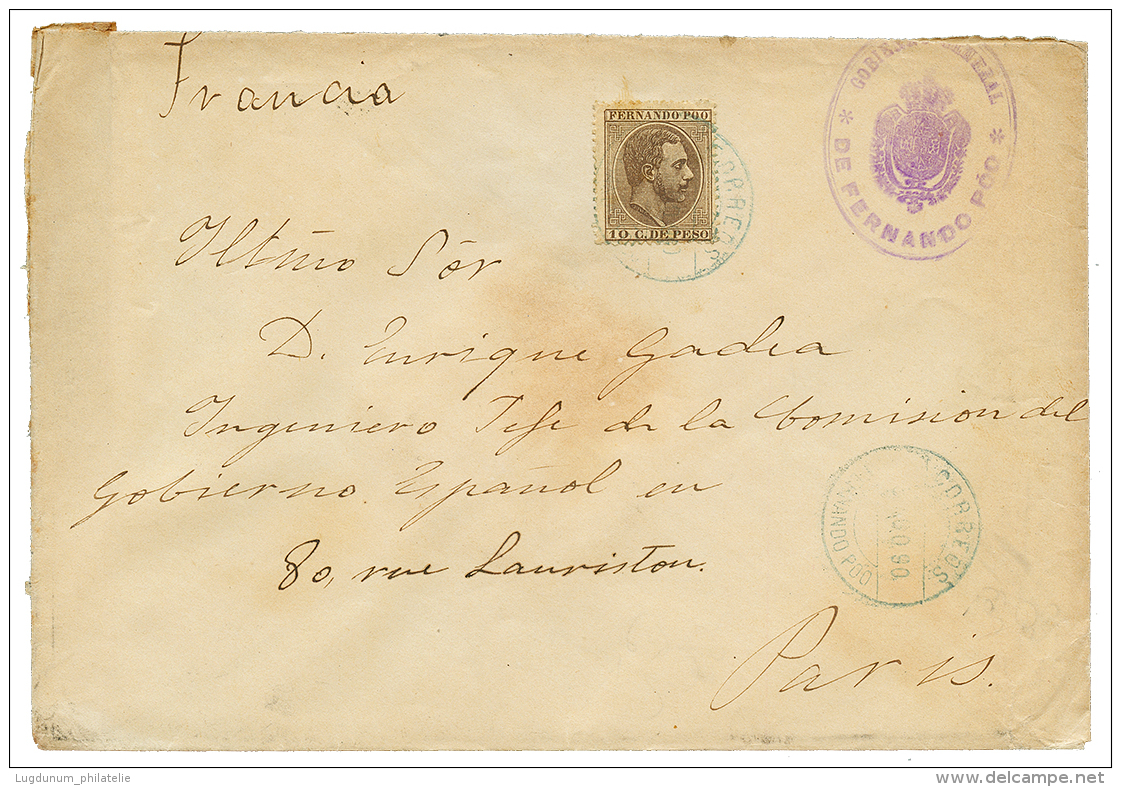 Francia
FERNANDO POO
10 C. DE PESO
CORREOS
GOBIERNO GENERAL
* DE FERNANDO PÓO *
Iltmo Sór
D. Enrique Gadea
Ingeniero Jefe de la Comision del
Gobierno Español en
80, rue Lauriston.
Paris.
CORREOS
FERNANDO POO
90
Lugdunum_philatelie
delcampe.net